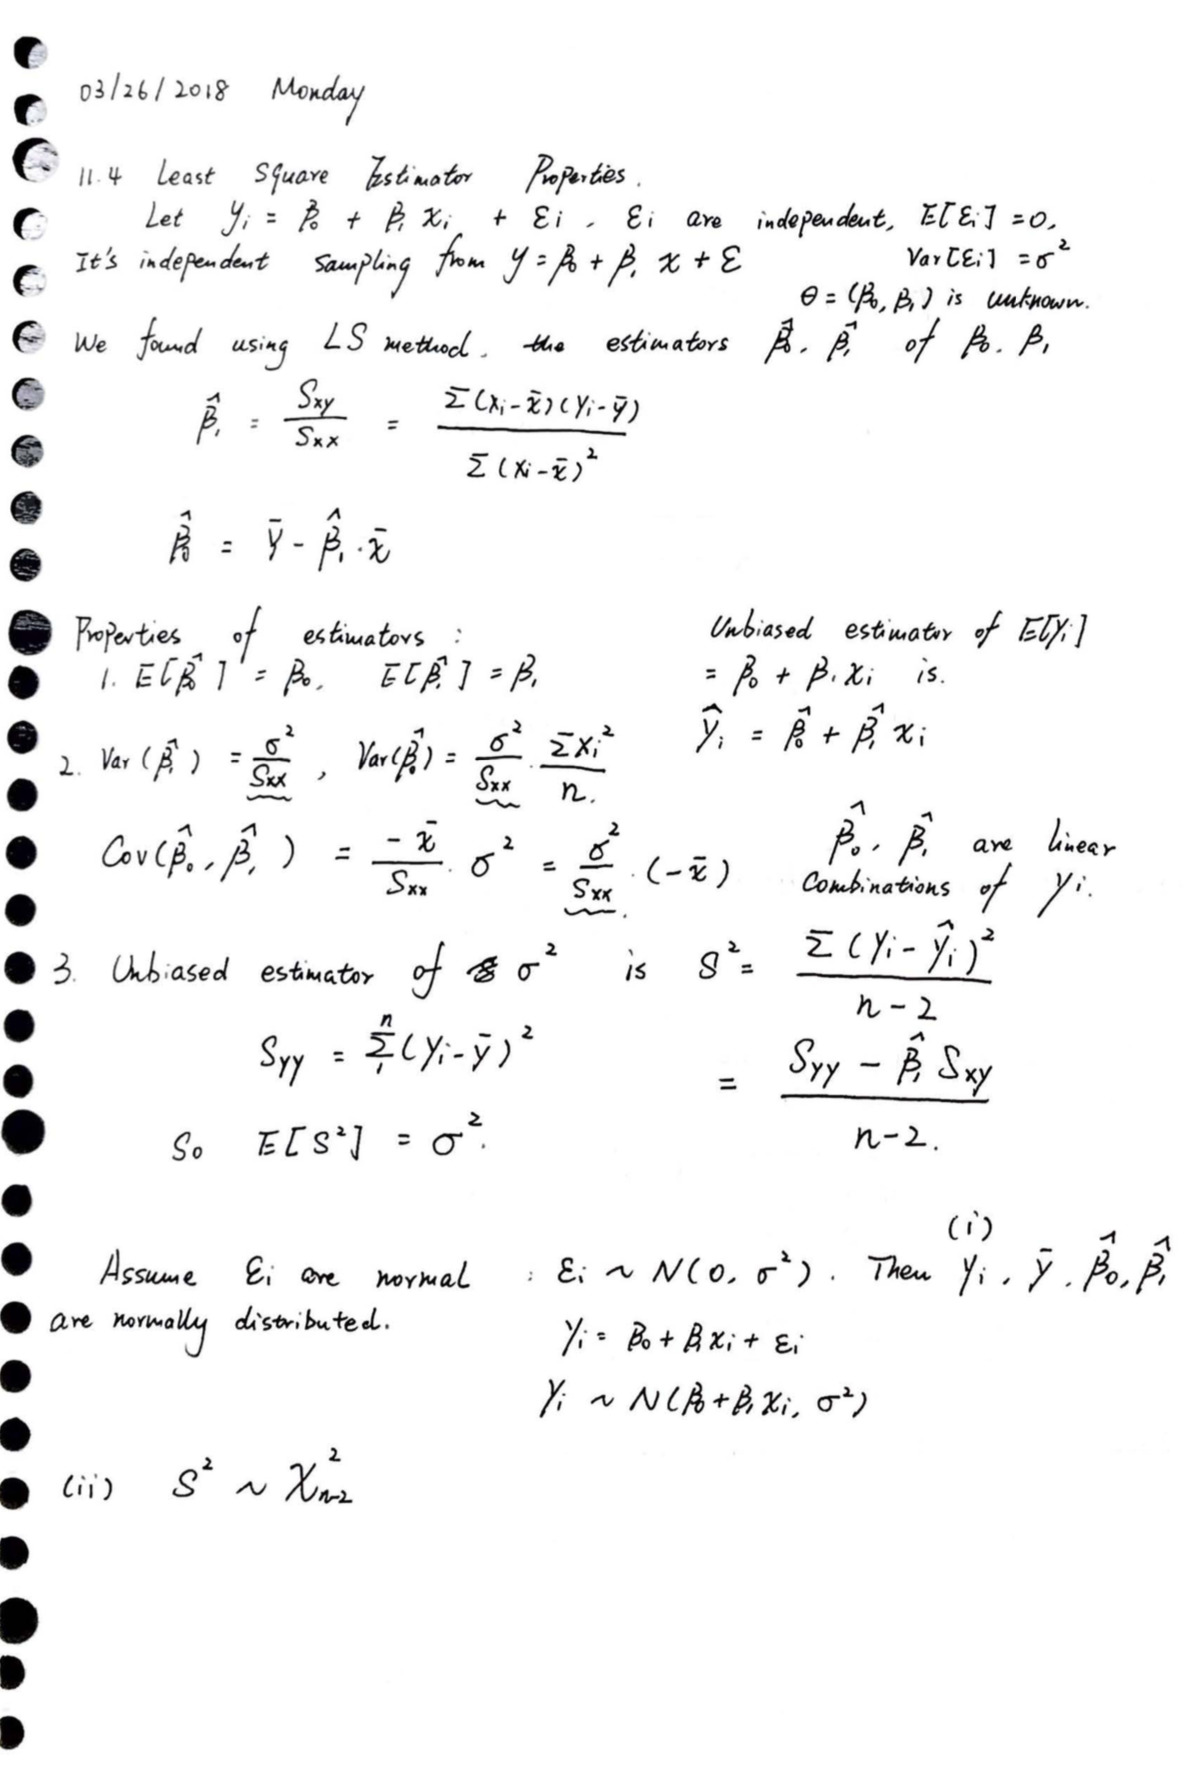 03/26/2018 Monday
11.4 Least Square Estimator Properties.
Let yi = β0 + β1 xi + εi, εi are independent, E[εi] = 0,
It's independent sampling from y = β0 + β1 x + ε Var[εi] = σ²
θ = (β0, β1) is unknown.
We found using LS method, the estimators β̂0, β̂1 of β0, β1
β̂1 = Sxy / Sxx = Σ(xi - x̄)(yi - ȳ) / Σ(xi - x̄)²
β̂0 = ȳ - β̂1 · x̄
Properties of estimators :
1. E[β̂0] = β0, E[β̂1] = β1
Unbiased estimator of E[yi]
= β0 + β1 xi is.
ŷi = β̂0 + β̂1 xi
2. Var(β̂1) = σ² / Sxx , Var(β̂0) = σ² / Sxx · Σxi² / n.
Cov(β̂0, β̂1) = -x̄ / Sxx · σ² = σ² / Sxx · (-x̄)
β̂0, β̂1 are linear
combinations of yi.
3. Unbiased estimator of σ² is S² = Σ(yi - ŷi)² / n-2
Syy = Σ₁ⁿ(yi - ȳ)²
= Syy - β̂1 Sxy / n-2.
So E[S²] = σ².
(i)
Assume εi are normal : εi ~ N(0, σ²). Then yi, ȳ, β̂0, β̂1
are normally distributed.
yi = β0 + β1xi + εi
yi ~ N(β0 + β1xi, σ²)
(ii) S² ~ χ²n-2